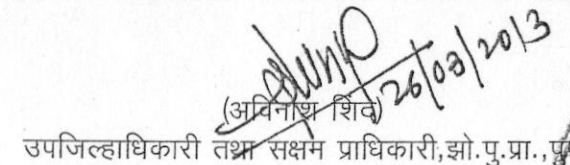 26/03/2013
(अविनाश शिंदे)
उपजिल्हाधिकारी तथा सक्षम प्राधिकारी,झो.पु.प्रा.,